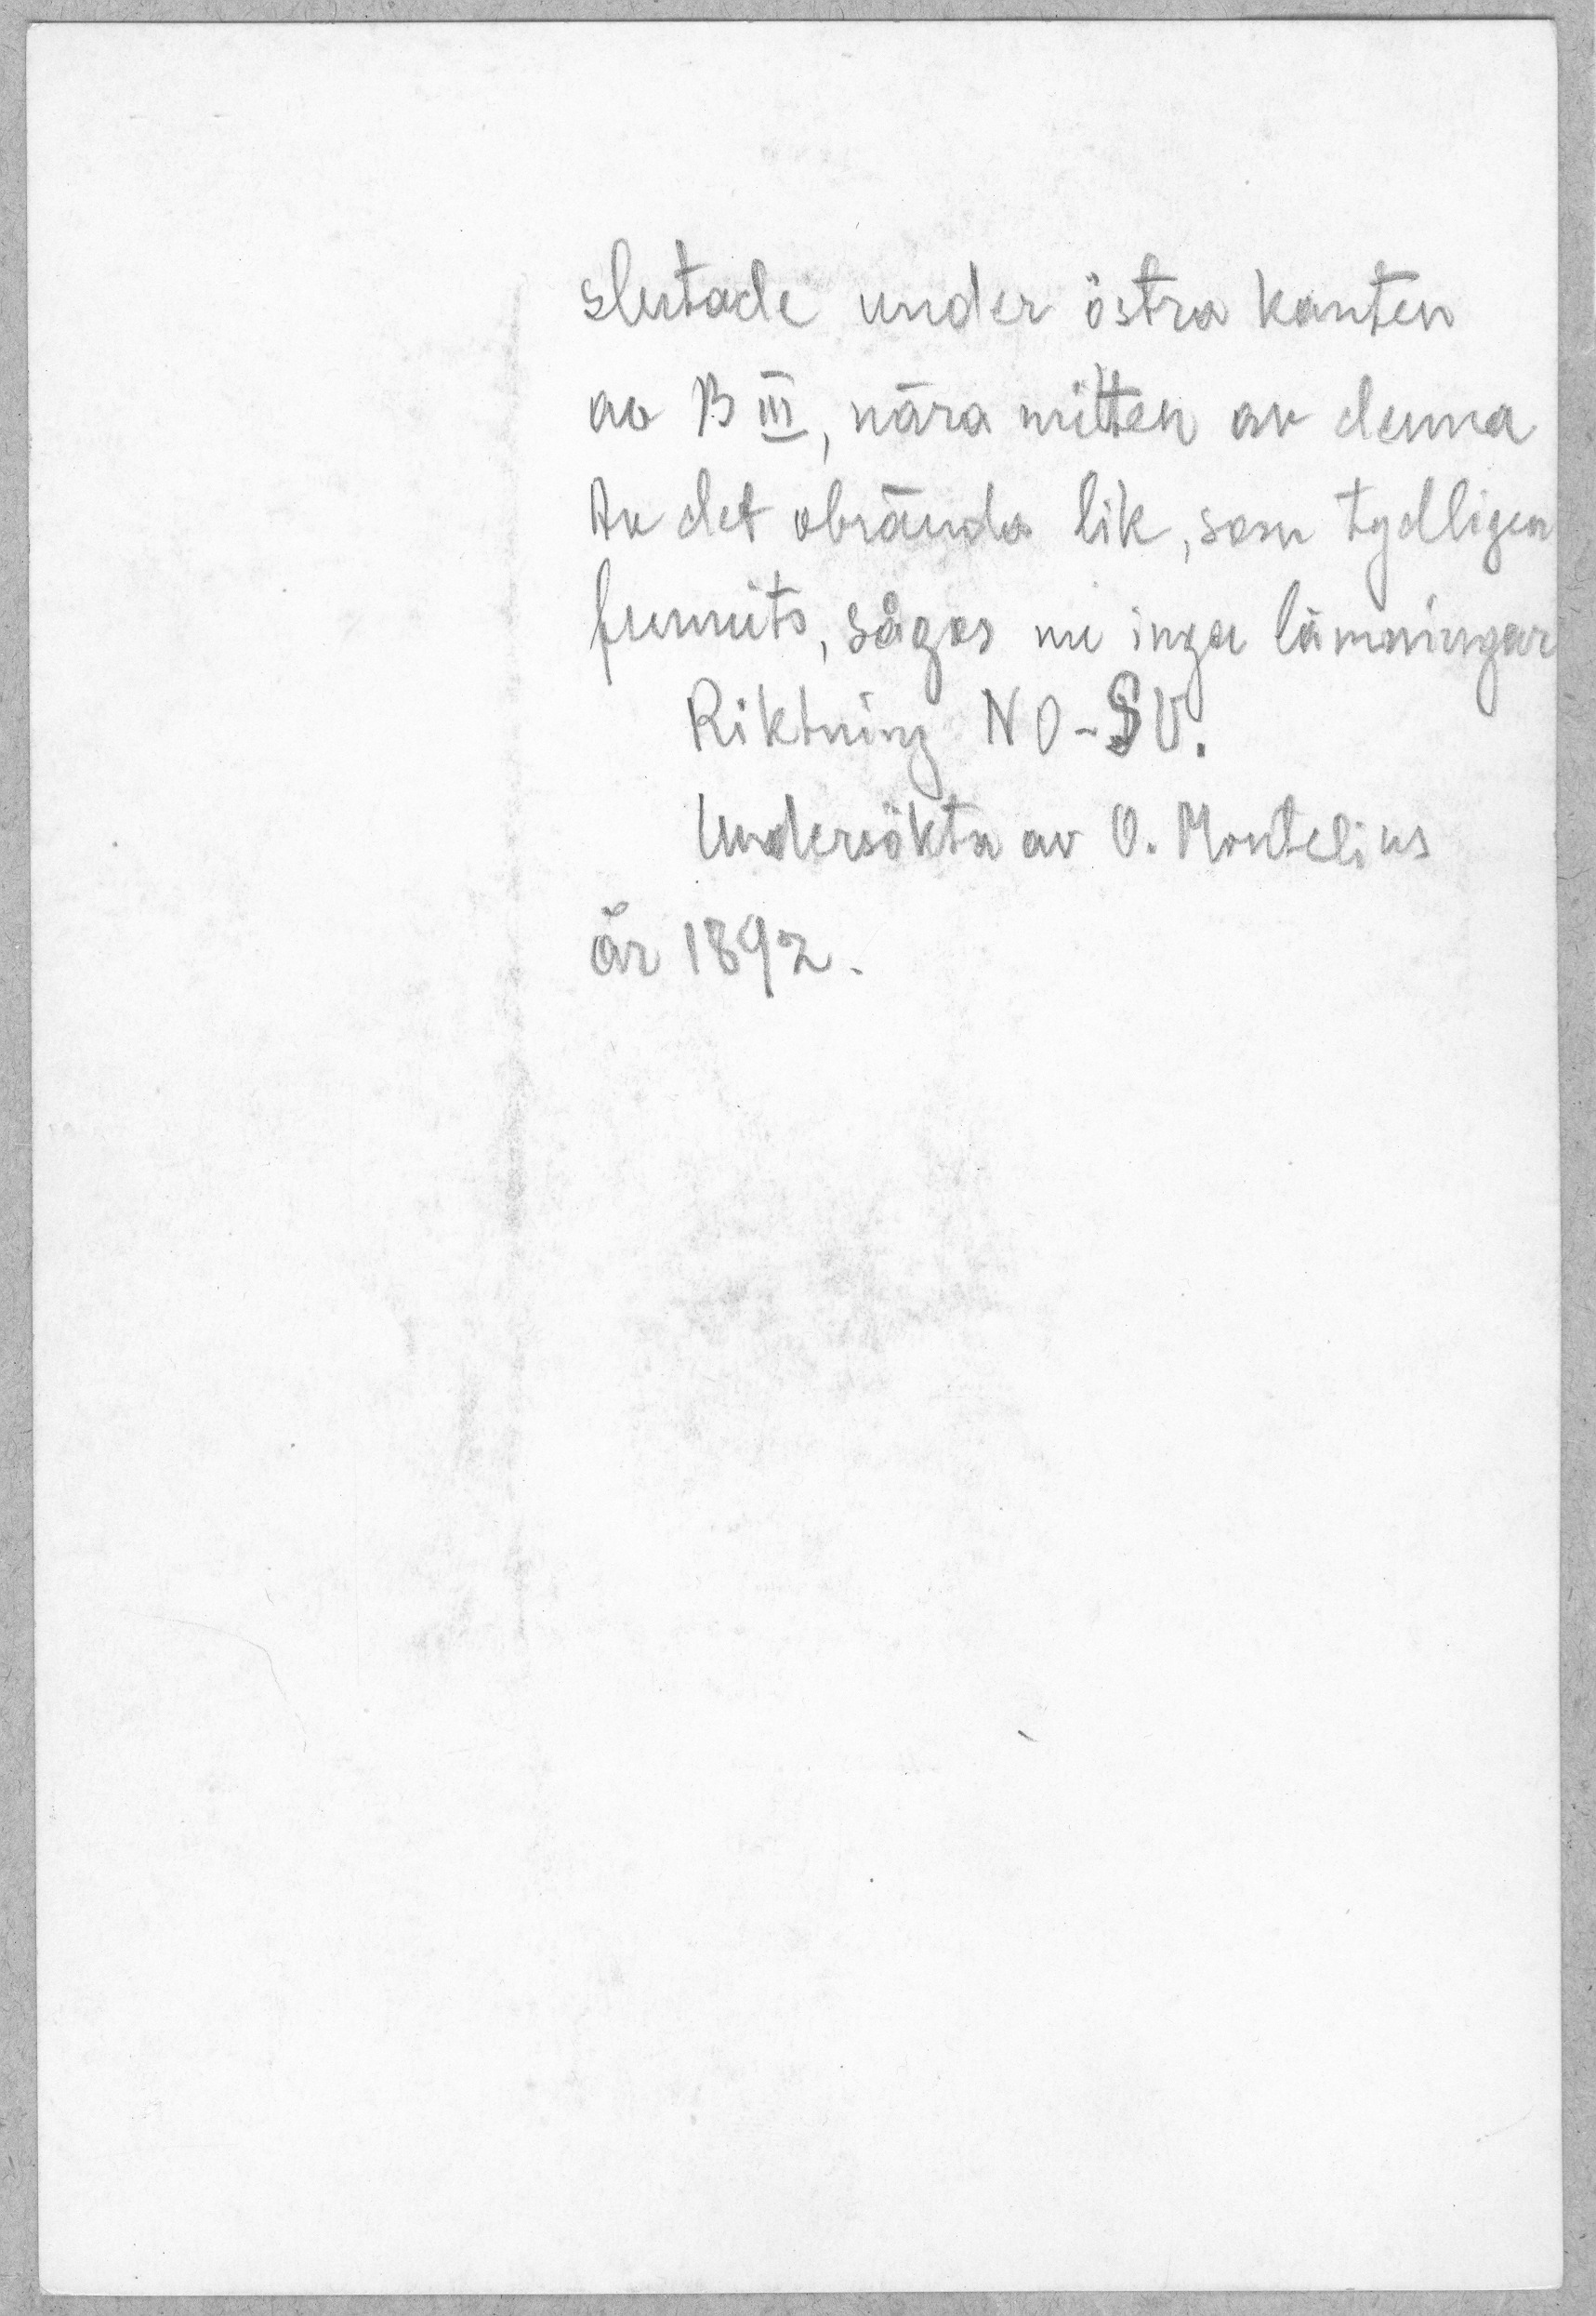 slutade under östra kanten
av B III, nära mitten av denna
Av det obrända lik, som tydligen
funnits, sågos nu inga lämningar
Riktning NO-SV.
Undersökta av O. Montelius
år 1892.